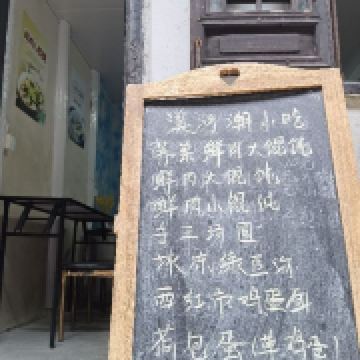 溪河潮小吃
荠菜鲜肉大馄饨
鲜肉大馄饨
鲜肉小馄饨
手工汤圆
冰凉绿豆汤
西红市鸡蛋面
荷包蛋(草鸡蛋)